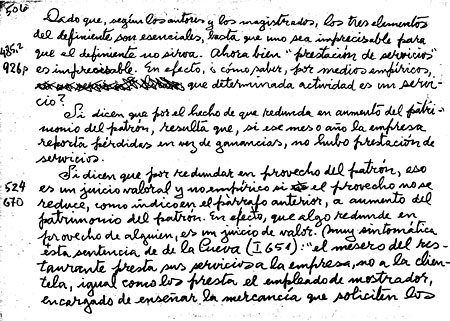 506
Dado que, según los autores y los magistrados, los tres elementos
del definiente son esenciales, basta que uno sea imprecisable para
que el definiente no sirva. Ahora bien "prestación de servicios"
485,2
926p
es imprecisable. En efecto, ¿cómo saber, por medios empíricos,
que determinada actividad es un servi-
cio?
Si dicen que por el hecho de que redunda en aumento del patri-
monio del patrón, resulta que, si ese mes o año la empresa
reporta pérdidas en vez de ganancias, no hubo prestación de
servicios.
Si dicen que por redundar en provecho del patrón, eso
524
670
es un juicio valoral y no empírico si el provecho no se
reduce, como indico en el párrafo anterior, a aumento del
patrimonio del patrón. En efecto, que algo redunde en
provecho de alguien, es un juicio de valor. (Muy sintomática
ésta sentencia de de la Cueva (I 651): "el mesero del res-
taurante presta sus servicios a la empresa, no a la clien-
tela, igual como los presta el empleado de mostrador,
encargado de enseñar la mercancía que soliciten los